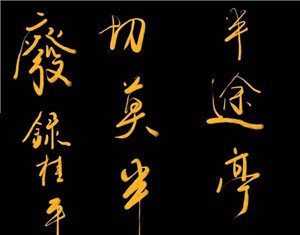 半途亭
切莫半
廢録桂平